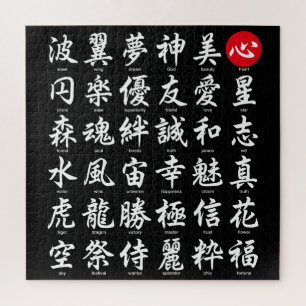 波 翼 夢 神 美 心
wave wing dream God beauty heart
円 楽 優 友 愛 星
circle ease superiority friend love star
森 魂 絆 誠 和 志
forest soul bonds truth peace will
水 風 宙 幸 魅 真
water wind universe happiness charm truth
虎 龍 勝 極 信 花
tiger dragon victory master trust flower
空 祭 侍 麗 粋 福
sky festival warrior splendor chic fortune